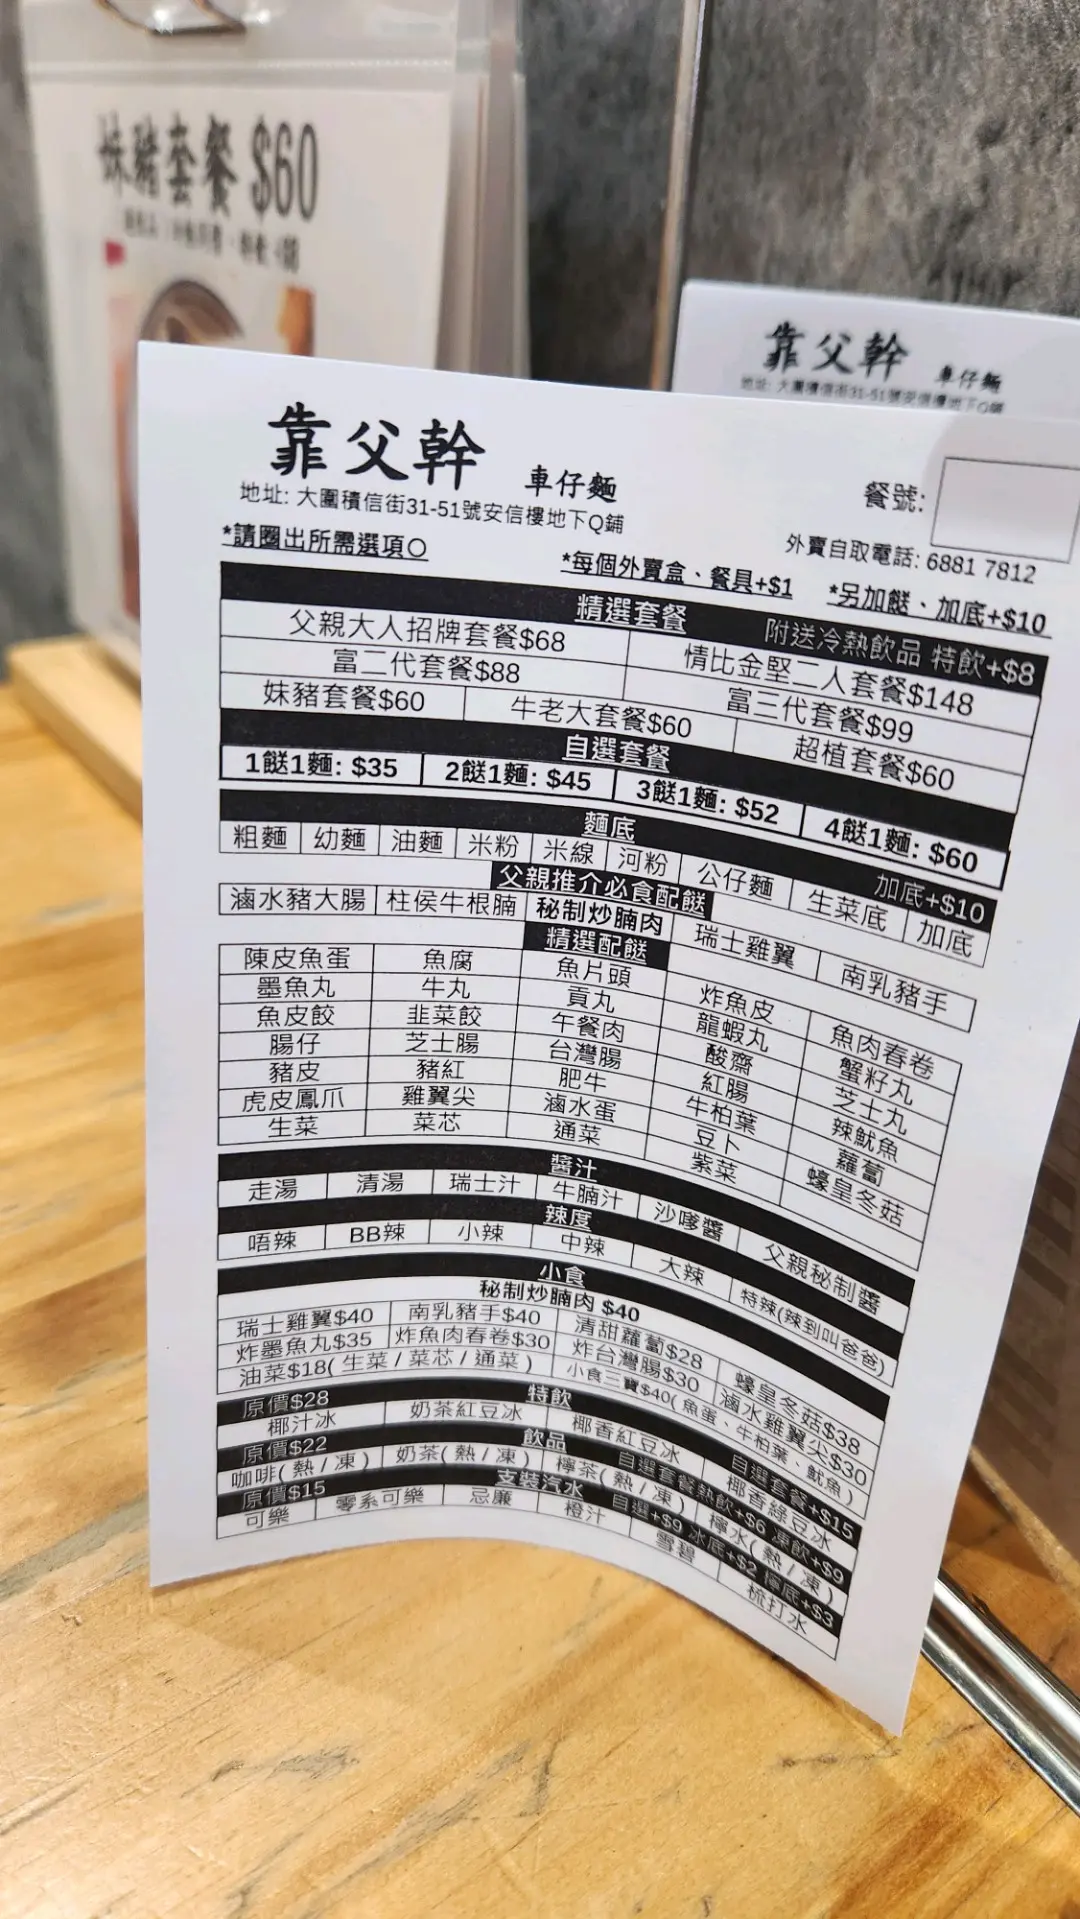 妹豬套餐 $60
靠父幹 車仔麵
地址: 大圍積信街31-51號安信樓地下Q鋪
靠父幹 車仔麵
地址: 大圍積信街31-51號安信樓地下Q鋪
餐號:
外賣自取電話: 6881 7812
*請圈出所需選項○ *每個外賣盒、餐具+$1 *另加餸、加底+$10
精選套餐 附送冷熱飲品 特飲+$8
父親大人招牌套餐$68 情比金堅二人套餐$148
富二代套餐$88 富三代套餐$99
妹豬套餐$60 牛老大套餐$60 超植套餐$60
自選套餐
1餸1麵: $35 2餸1麵: $45 3餸1麵: $52 4餸1麵: $60
麵底 加底+$10
粗麵 幼麵 油麵 米粉 米線 河粉 公仔麵 生菜底 加底
父親推介必食配餸
滷水豬大腸 柱侯牛根腩 秘制炒腩肉 瑞士雞翼 南乳豬手
精選配餸
陳皮魚蛋 魚腐 魚片頭 炸魚皮 魚肉春卷
墨魚丸 牛丸 貢丸 龍蝦丸 蟹籽丸
魚皮餃 韭菜餃 午餐肉 酸齋 芝士丸
腸仔 芝士腸 台灣腸 紅腸 辣魷魚
豬皮 豬紅 肥牛 牛柏葉 蘿蔔
虎皮鳳爪 雞翼尖 滷水蛋 豆卜 蠔皇冬菇
生菜 菜芯 通菜 紫菜
醬汁
走湯 清湯 瑞士汁 牛腩汁 沙嗲醬 父親秘制醬
辣度
唔辣 BB辣 小辣 中辣 大辣 特辣(辣到叫爸爸)
小食
秘制炒腩肉 $40
瑞士雞翼$40 南乳豬手$40 清甜蘿蔔$28 蠔皇冬菇$38
炸墨魚丸$35 炸魚肉春卷$30 炸台灣腸$30 滷水雞翼尖$30
油菜$18(生菜/菜芯/通菜) 小食三寶$40(魚蛋、牛柏葉、魷魚)
原價$28 特飲 自選套餐+$15
椰汁冰 奶茶紅豆冰 椰香紅豆冰 椰香綠豆冰
原價$22 飲品 自選套餐熱飲+$6 凍飲+$9
咖啡(熱/凍) 奶茶(熱/凍) 檸茶(熱/凍) 檸水(熱/凍)
原價$15 支裝汽水 自選+$9 冰底+$2 檸底+$3
可樂 零系可樂 忌廉 橙汁 雪碧 梳打水